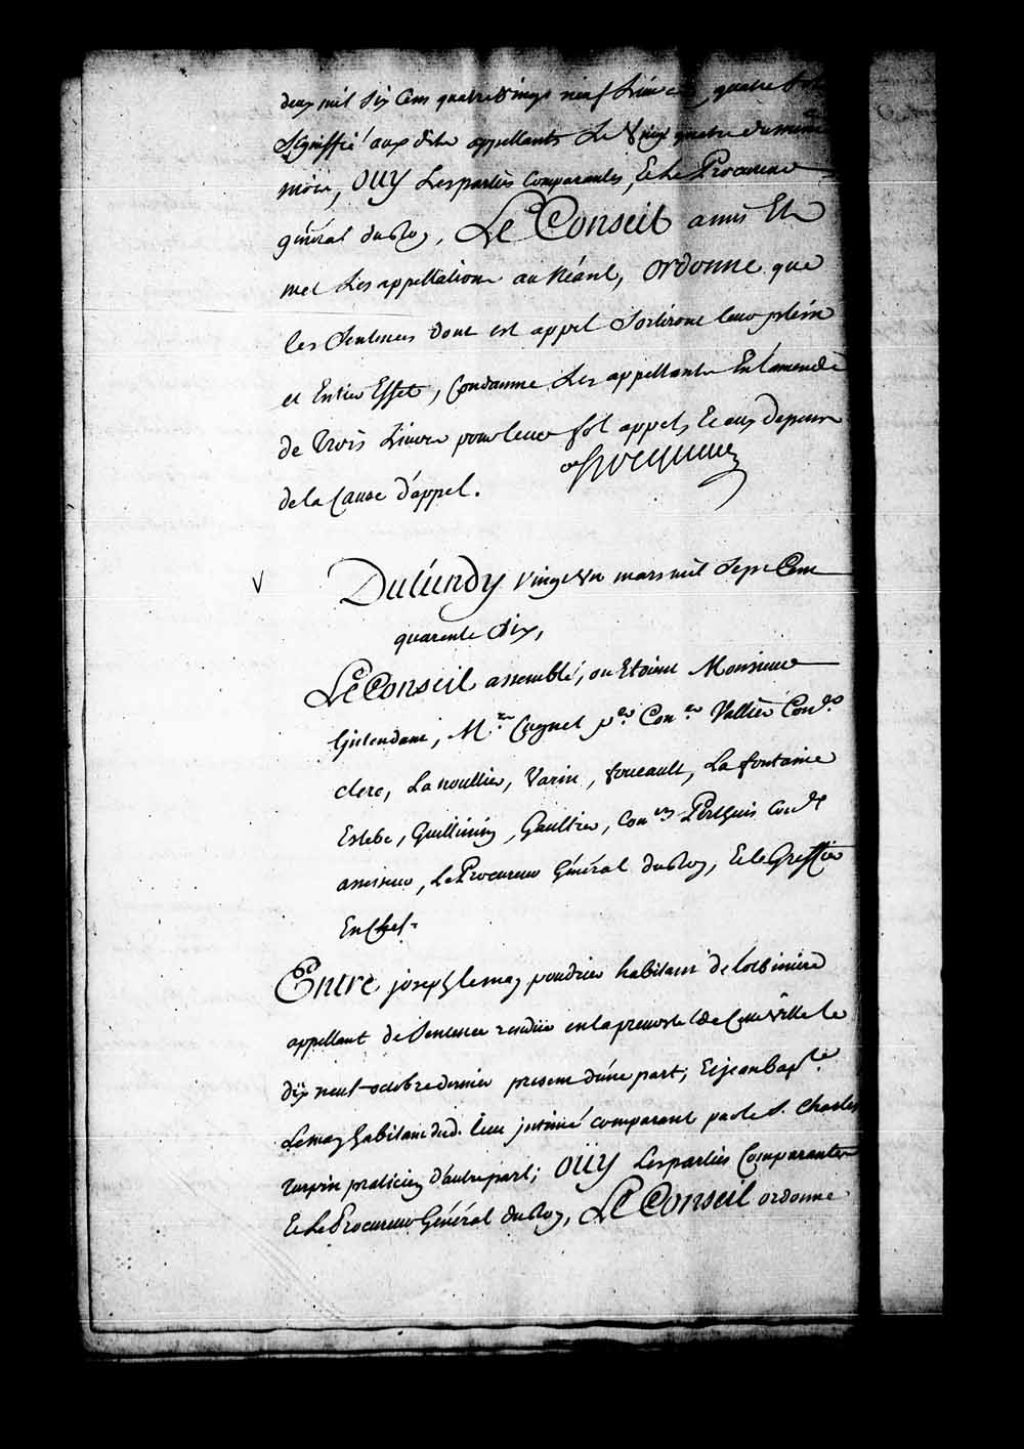 deux mil six Cens quatrevingt neuf livres quatre sols
Signiffié aux dits appellants Le Vingt quatre du même
mois, OUY Les parties Comparantes, Et Le Procureur
général du Roy, Le Conseil a mis Et
met Les appellations au Néant, ordonne que
les Sentences dont est appel Sortiront leur plein
et Entier Effet, Condamne Les appellants En l'amende
de Trois Livres pour leur fol appel, Et aux depens
de la Cause d'appel.
hocquart
V
Du lundy vingt un mars mil Sept Cent
quarente Six,
Le Conseil assemblé, ou Etoient Monsieur
L'Intendant, M.re Cugnet p.er Con.er Vallier Con.er
clerc, Lanoullier, Varin, foucault, La fontaine
Estebe, Guillimin, Gaultier, Con.ers Perthuis Con.er
assesseur, Le Procureur Général du Roy, Et le Greffier
En Chef.
Entre joseph lemay poudrier habitant de lotbiniere
appellant de Sentence rendüe en la prevosté de Cette Ville le
dix neuf octobre dernier present d'une part; Et jean Bap.te
Lemay habitant dud. lieu intimé comparant par le S. Charles
turpin praticien d'autre part; OUY Les parties Comparantes
Et Le Procureur Général du Roy, LE Conseil ordonne